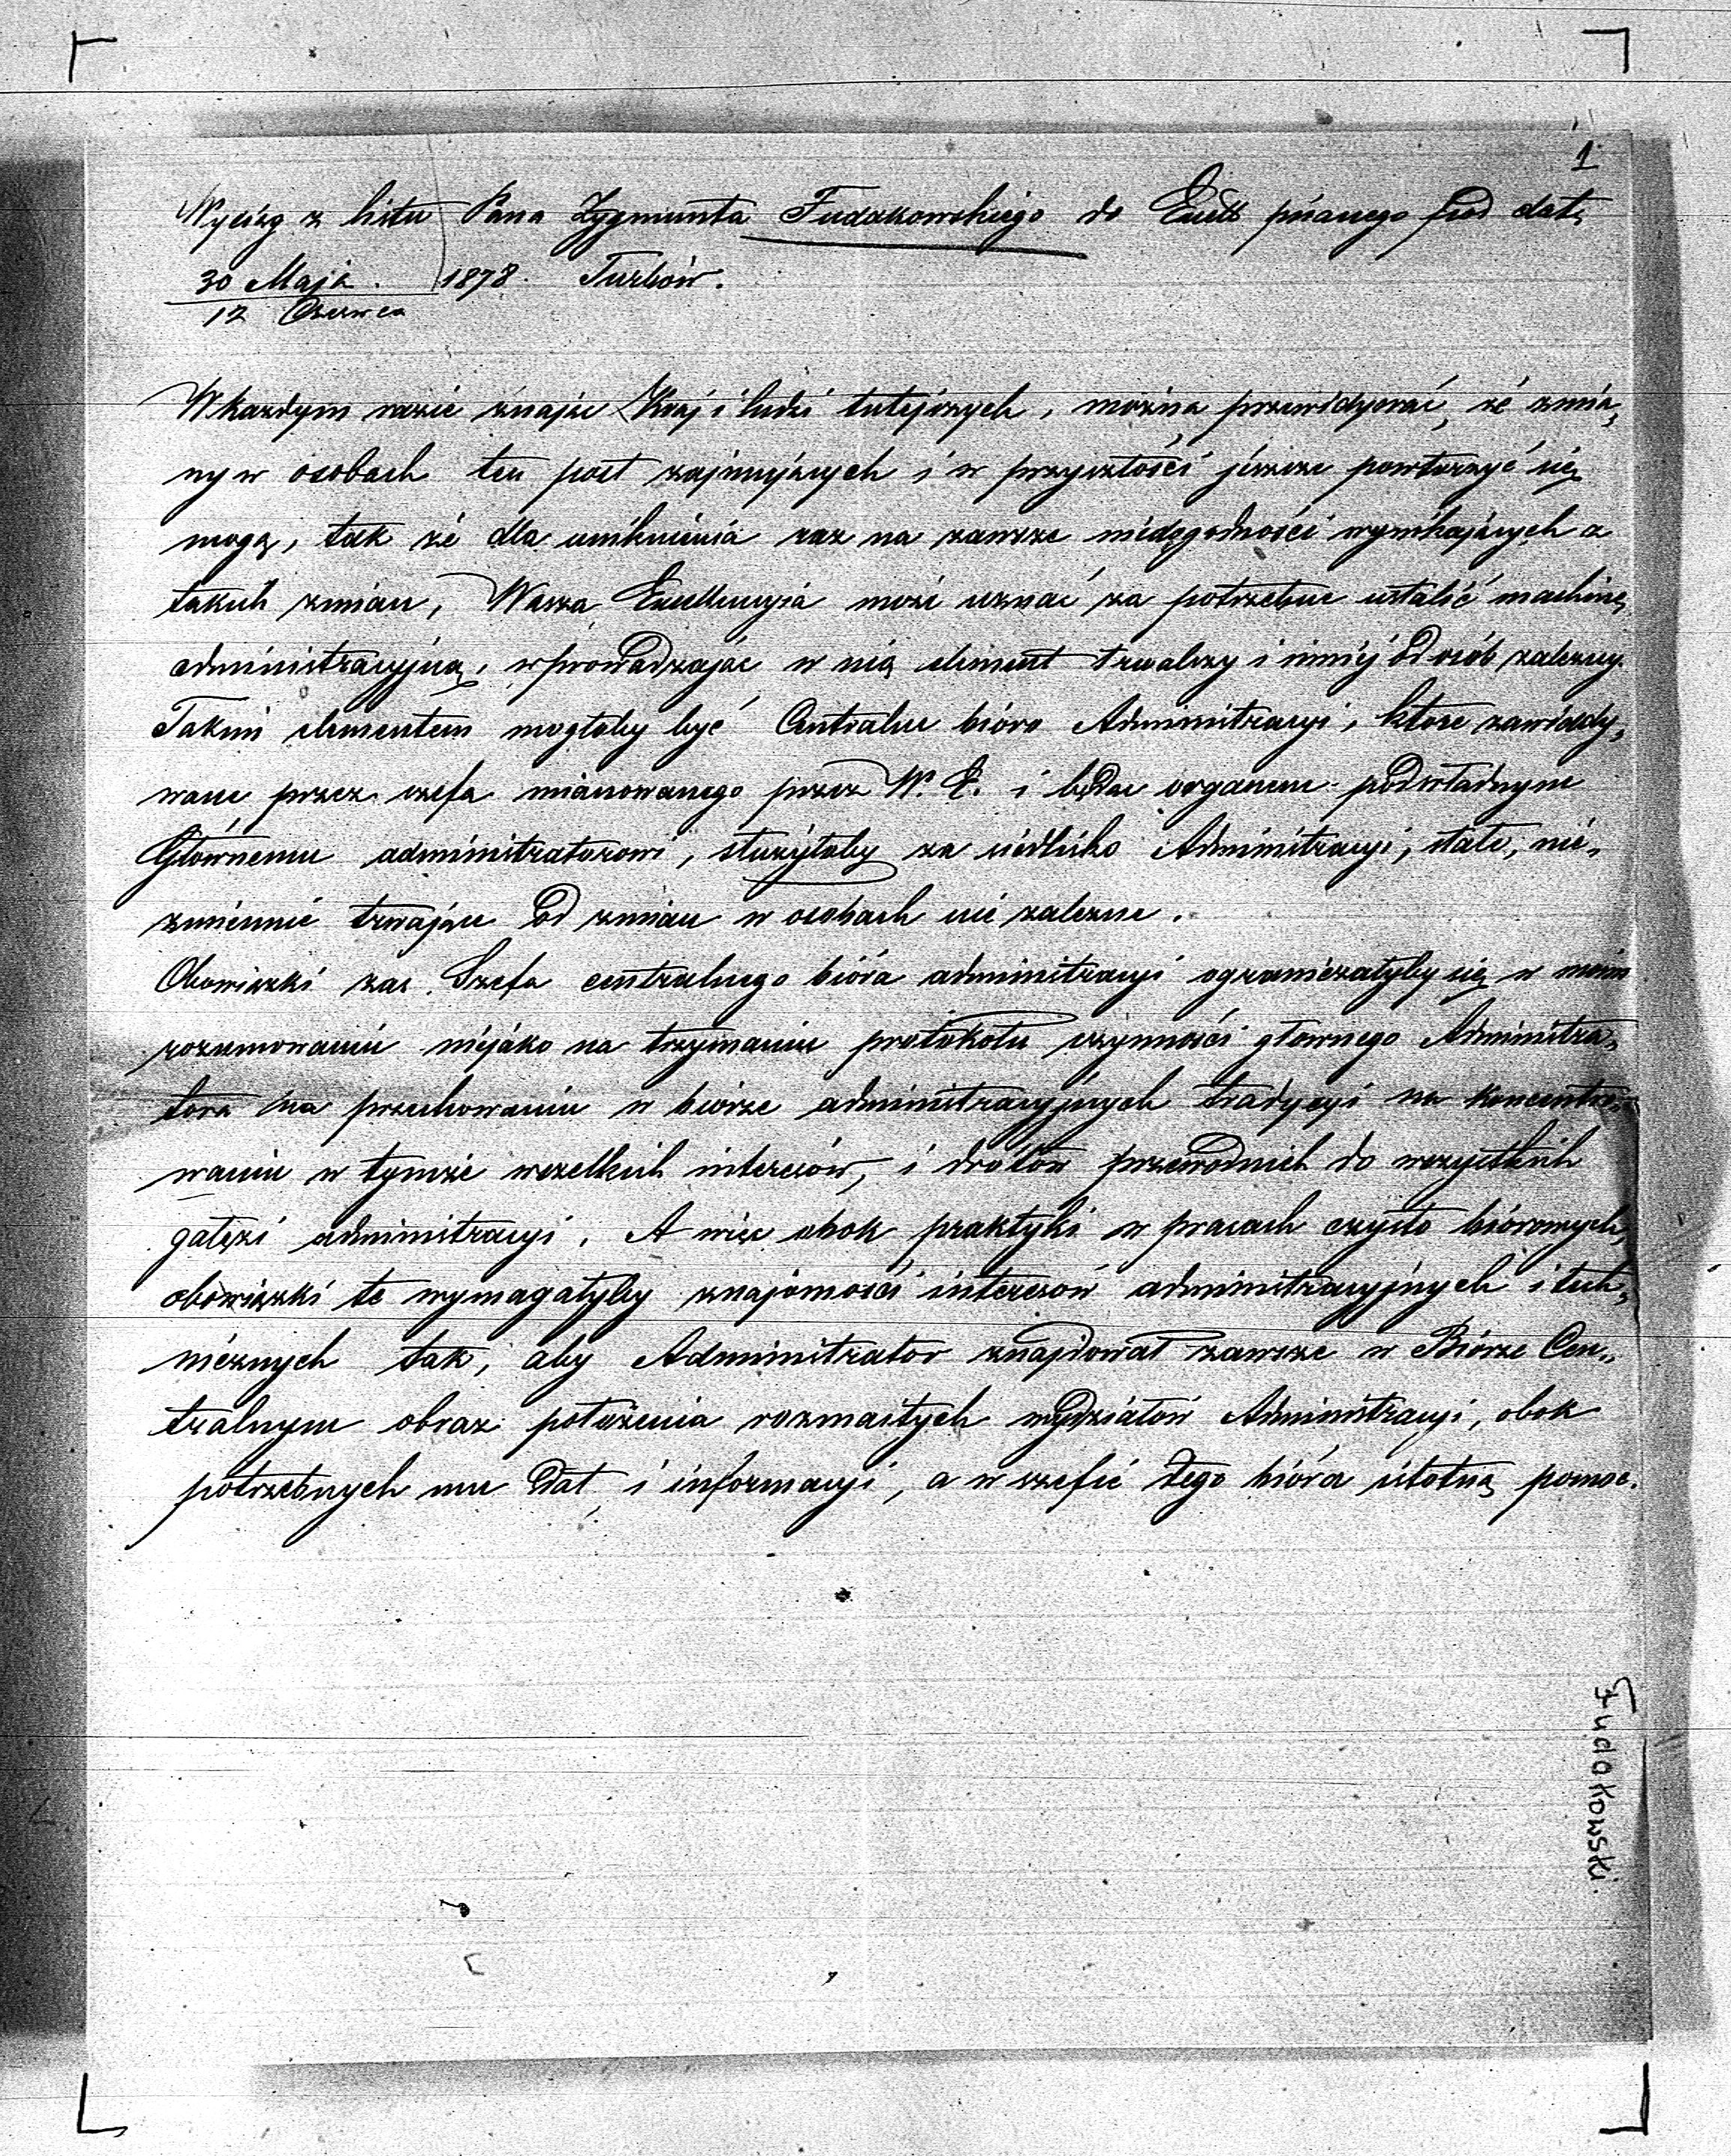 1
Wyciąg z listu Pana Zygmunta Fudakowskiego do Excell. pisanego pod datą
30 Maja 1878. Turbów.
12 Czerwca
W każdym razie znając Kraj i ludzi tutejszych, można przewidywać, że zmia„
ny w osobach ten post zajmujących i w przyszłości jeszcze powtarzyć się
mogą, tak że dla uniknienia raz na zawsze niedogodności wynikających z
takich zmian, Wasza Excellencyia może uznać za potrzebne ustalić machinę
administracyjną, wprowadzając w nią element trwalszy i mniej od osób zależny.
Takim elementem mogłoby być Centralne bióro Administracyi, które zawiady„
wane przez szefa mianowanego przez W. E. i będąc organem podwładnym
Głównemu administratorowi, służyłoby za siedlisko Administracyi, stale, nie„
zmiennie trwające od zmian w osobach nie zależne.
Obowiązki zaś Szefa centralnego bióra administracyi ograniczałyby się w moim
rozumowaniu niejako na trzymaniu protokołu czynności głównego Administra„
tora na przechowaniu w biórze administracyjnych tradycyi na koncentro„
waniu w tymże wszelkich interesów, i drótów przewodnich do wszystkich
gałęzi administracyi. A więc obok praktyki w pracach czysto biórowych,
obowiązki te wymagałyby znajomości interesów administracyjnych i tech„
nicznych tak, aby Administrator znajdował zawsze w Biórze Cen„
tralnym obraz położenia rozmaitych wydziałów Administracyi, obok
potrzebnych mu dat i informacyi, a w szefie tego bióra istotną pomoc.
Fudakowski.